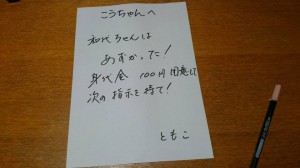 こうちゃんへ
和代ちゃんは
あずかった!
身代金 100円 用意して
次の指示を待て!
ともこ